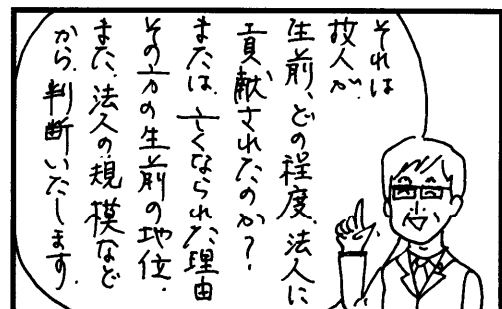 それは
故人が、
生前、どの程度、法人に
貢献されたのか？
または、亡くなられた理由
その方の生前の地位、
また、法人の規模など
から、判断いたします。